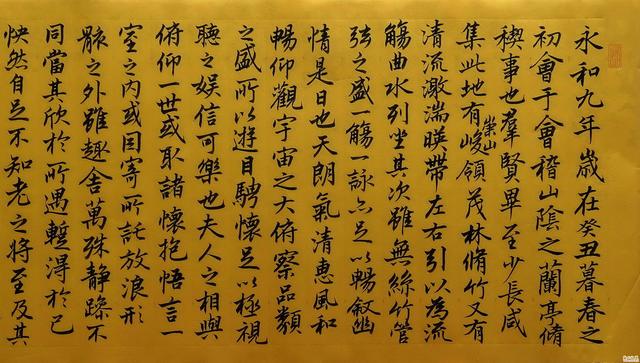 永和九年歲在癸丑暮春之
初會于會稽山陰之蘭亭脩
禊事也羣賢畢至少長咸
集此地有崇山峻領茂林脩竹又有
清流激湍暎帶左右引以為流
觴曲水列坐其次雖無絲竹管
弦之盛一觴一詠亦足以暢敘幽
情是日也天朗氣清惠風和
暢仰觀宇宙之大俯察品類
之盛所以遊目騁懷足以極視
聽之娛信可樂也夫人之相與
俯仰一世或取諸懷抱悟言一
室之內或因寄所託放浪形
骸之外雖趣舍萬殊靜躁不
同當其欣於所遇暫得於己
怏然自足不知老之將至及其